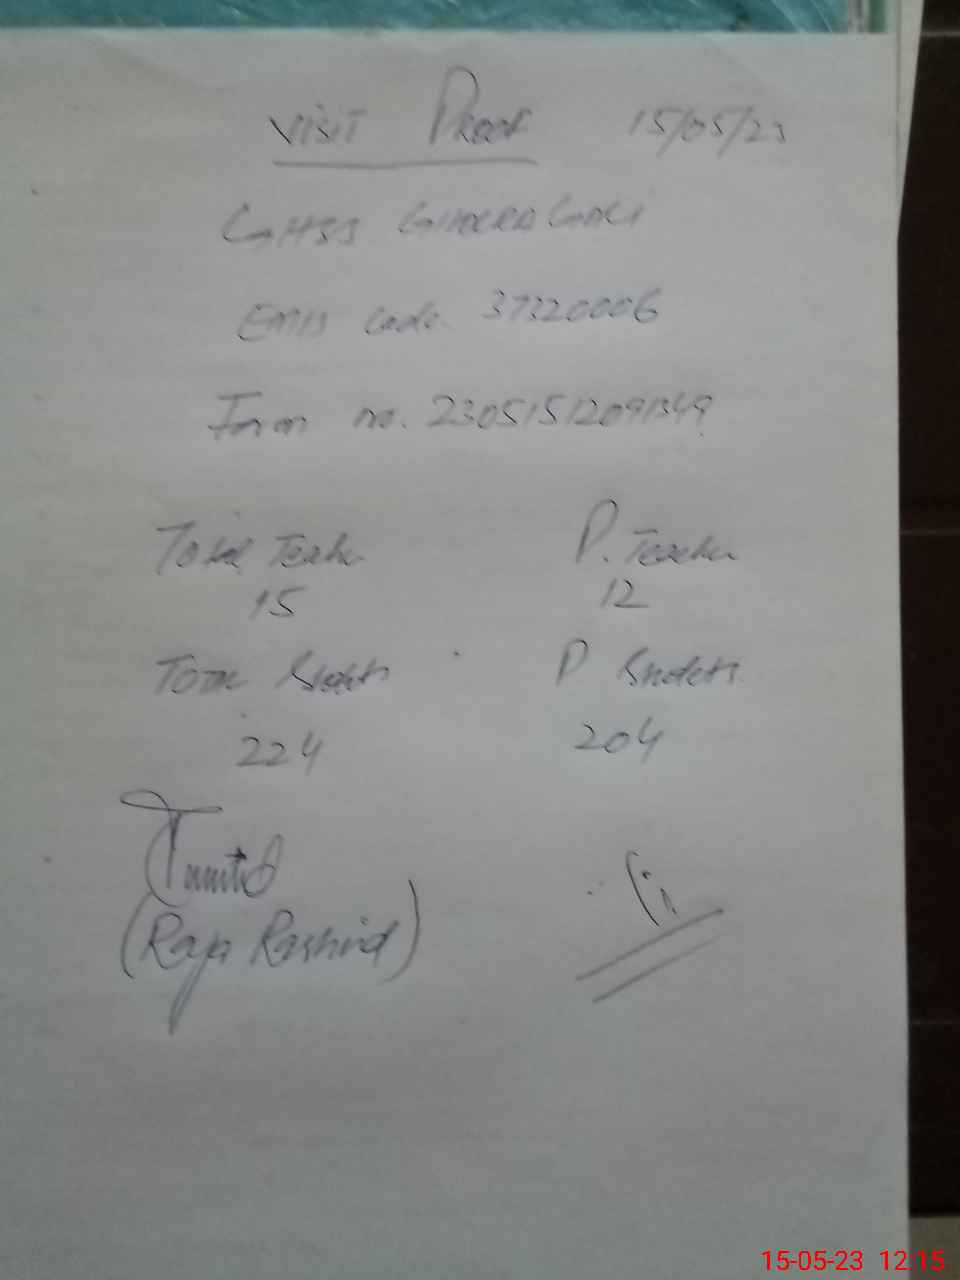 VISIT PROOF 15/05/23
GHSS
EMIS code 37320006
Form no. 23051512091349
Total Teacher P. Teacher
15 12
Total Students P Students
224 204
(Raja Rashid)
15-05-23 12:15